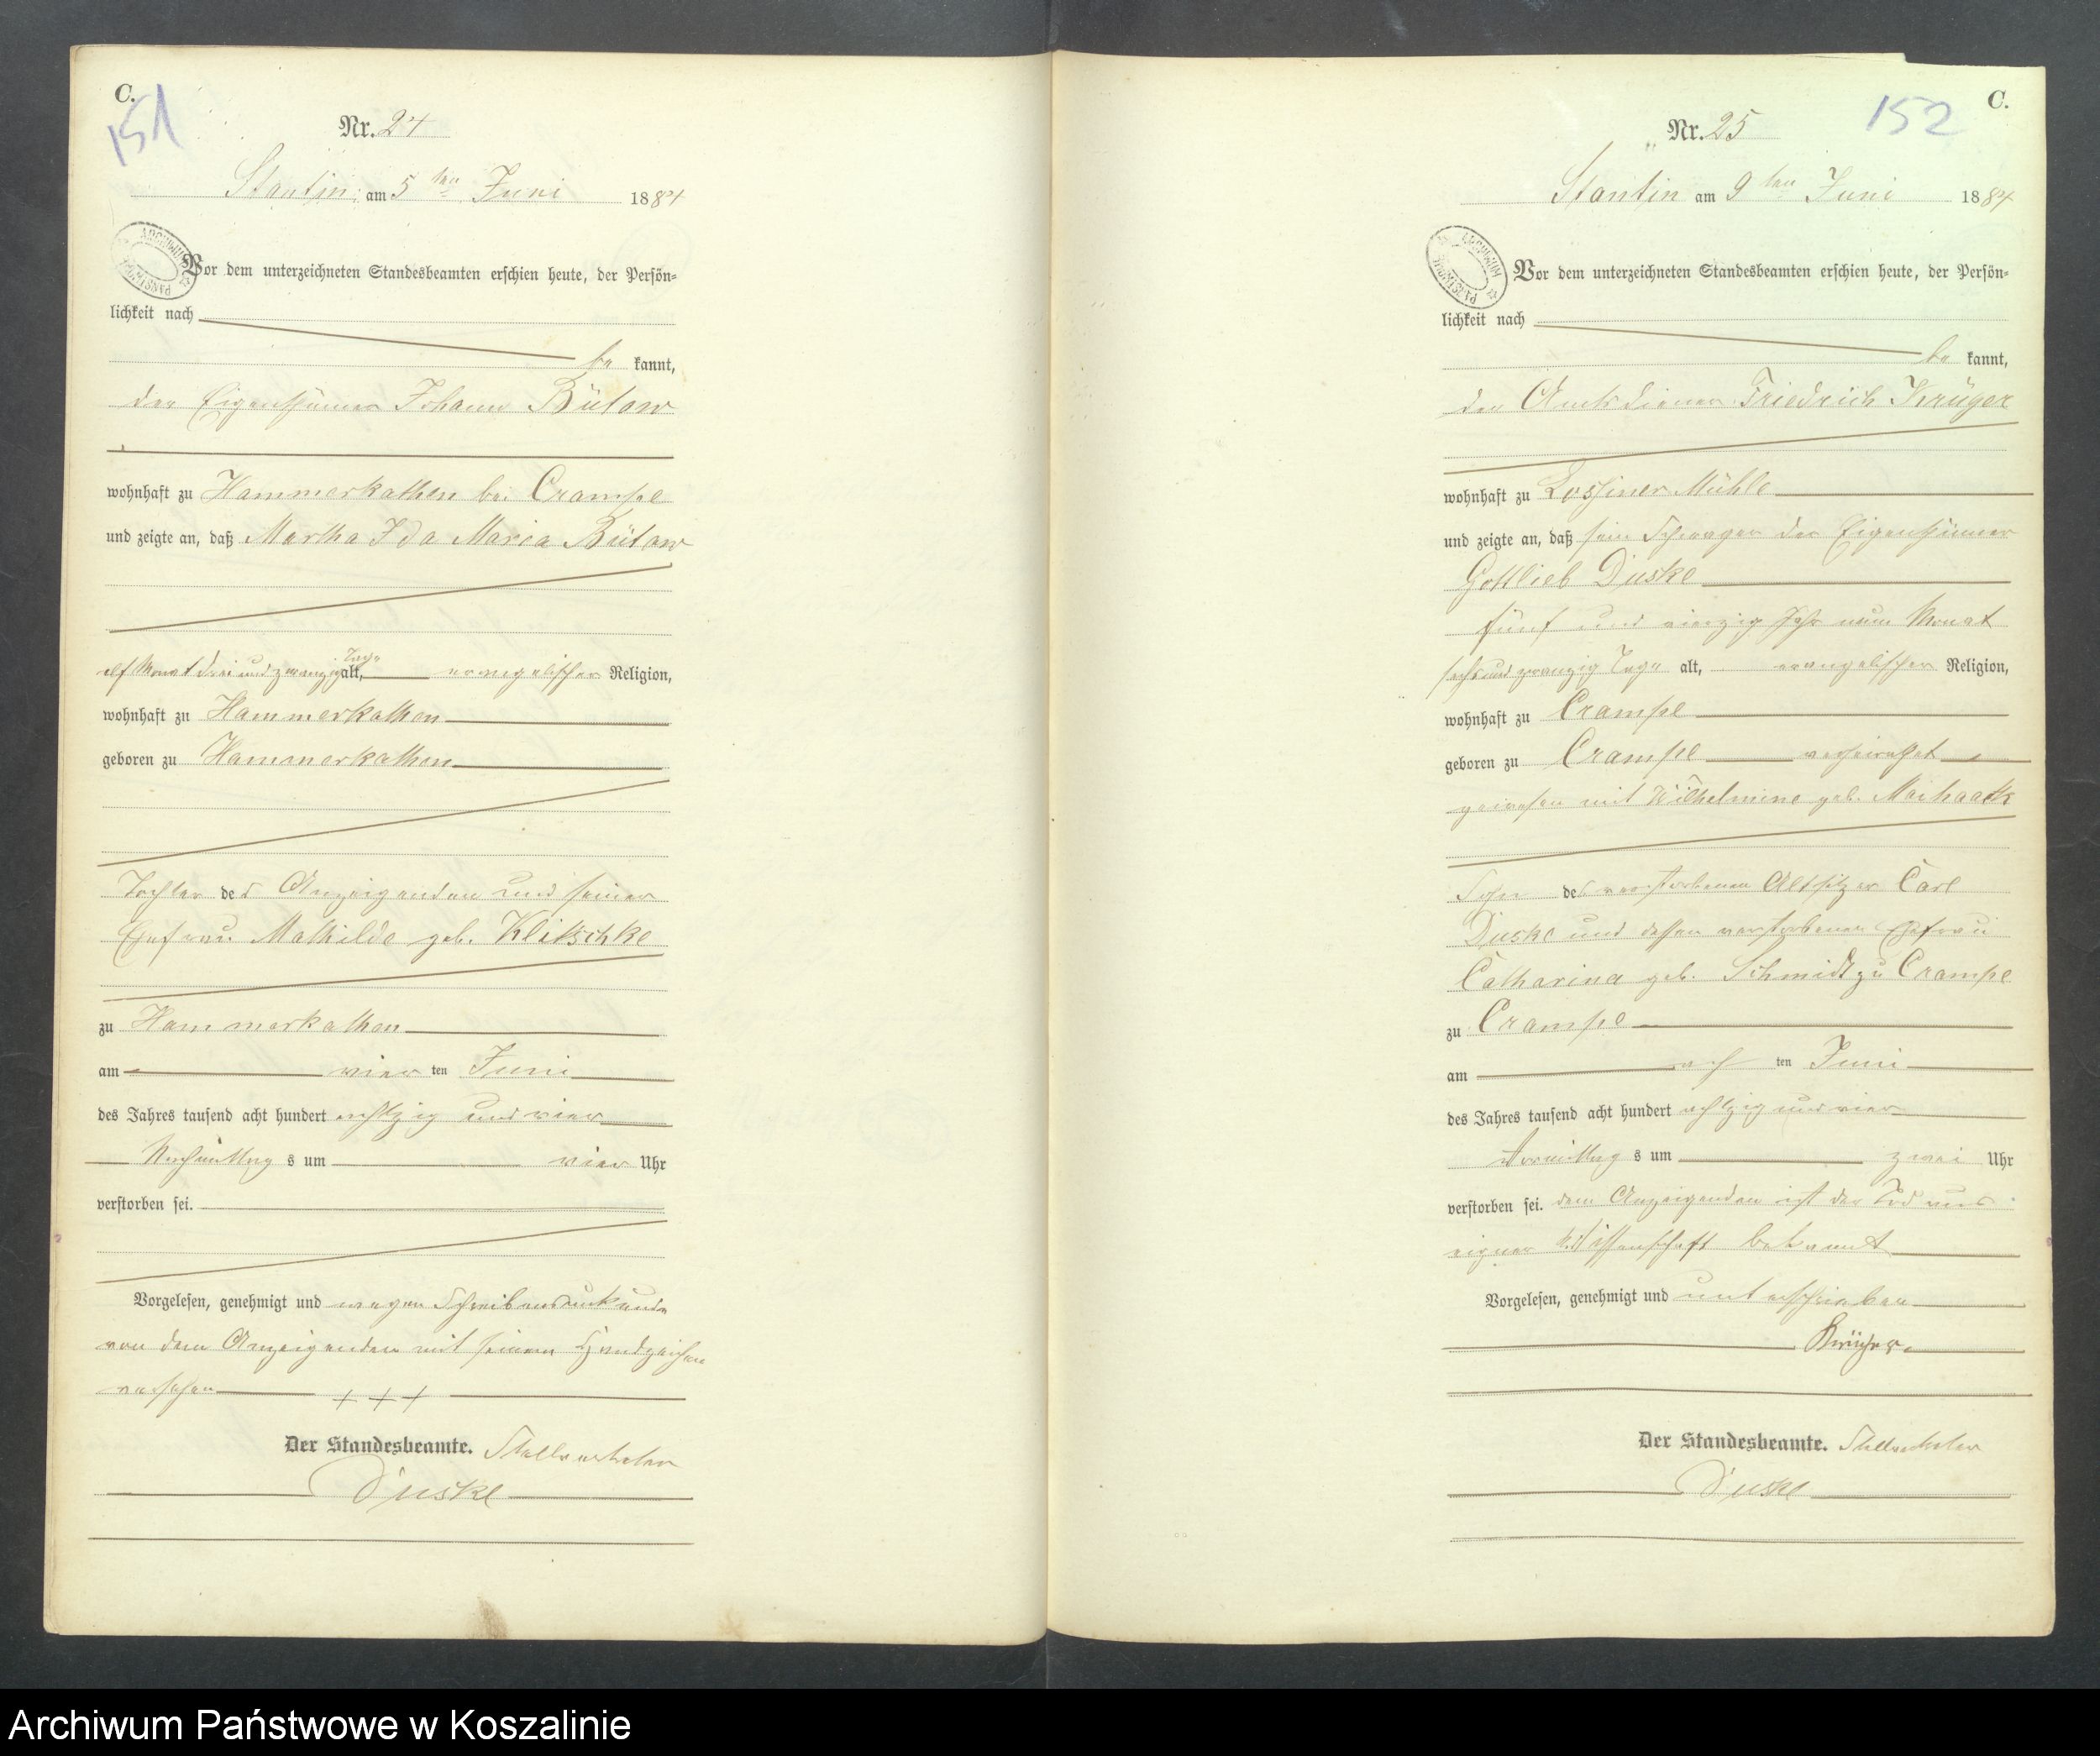 C.
151
Nr. 24
Stantin am 5 ten Juni 1884
ARCHIWUM PAŃSTWOWE
Vor dem unterzeichneten Standesbeamten erschien heute, der Persön-
lichkeit nach
be kannt,
der Eigenthümer Johann Bütow
wohnhaft zu Hammerkathen bei Crampe
und zeigte an, daß Martha Ida Maria Bütow
Tage
elf Monat drei und zwanzig alt, evangelischer Religion,
wohnhaft zu Hammerkathen
geboren zu Hammerkathen
Tochter des Anzeigenden und seiner
Ehefrau Mathilde geb. Klitschke
zu Hammerkathen
am vier ten Juni
des Jahres tausend acht hundert achtzig und vier
Nachmittag s um vier Uhr
verstorben sei.
Vorgelesen, genehmigt und wegen Schreibensunkunde
von dem Anzeigenden mit seinem Handzeichen
versehen + + +
Der Standesbeamte. Stellvertreter
Duske
C.
152
Nr. 25
Stantin am 9 ten Juni 1884
ARCHIWUM PAŃSTWOWE
Vor dem unterzeichneten Standesbeamten erschien heute, der Persön-
lichkeit nach
be kannt,
der Amtsdiener Friedrich Krüger
wohnhaft zu Lossiner Mühle
und zeigte an, daß sein Schwager der Eigenthümer
Gottlieb Duske
fünf und vierzig Jahr neun Monat
sechs und zwanzig Tage alt, evangelischer Religion,
wohnhaft zu Crampe
geboren zu Crampe verheirathet
gewesen mit Wilhelmine geb. Maihaack
Sohn des verstorbenen Altsitzer Carl
Duske und dessen verstorbenen Ehefrau
Catharina geb. Schmidt zu Crampe
zu Crampe
am ach ten Juni
des Jahres tausend acht hundert achtzig und vier
Vormittag s um zwei Uhr
verstorben sei. dem Anzeigenden ist der Tod aus
eigner Wissenschaft bekannt
Vorgelesen, genehmigt und unterschrieben
Krüger.
Der Standesbeamte. Stellvertreter
Duske
Archiwum Państwowe w Koszalinie